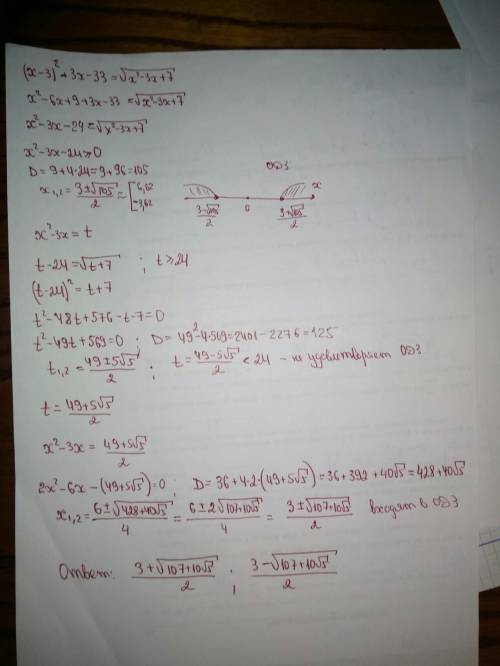 (x-3)²+3x-33=√(x²-3x+7)
x²-6x+9+3x-33=√(x²-3x+7)
x²-3x-24=√(x²-3x+7)
x²-3x-24≥0
D=9+4·24=9+96=105
x₁,₂=(3±√105)/2≈[6,62 -3,62
ОДЗ
(3-√105)/2 0 (3+√105)/2 x
x²-3x=t
t-24=√(t+7) ; t≥24
(t-24)²=t+7
t²-48t+576-t-7=0
t²-49t+569=0 ; D=49²-4·569=2401-2276=125
t₁,₂=(49±5√5)/2 ; t=(49-5√5)/2<24 - не удовлетворяет ОДЗ
t=(49+5√5)/2
x²-3x=(49+5√5)/2
2x²-6x-(49+5√5)=0 ; D=36+4·2·(49+5√5)=36+392+40√5=428+40√5
x₁,₂=(6±√(428+40√5))/4=(6±2√(107+10√5))/4=(3±√(107+10√5))/2 входят в ОДЗ
Ответ: (3+√(107+10√5))/2 ; (3-√(107+10√5))/2